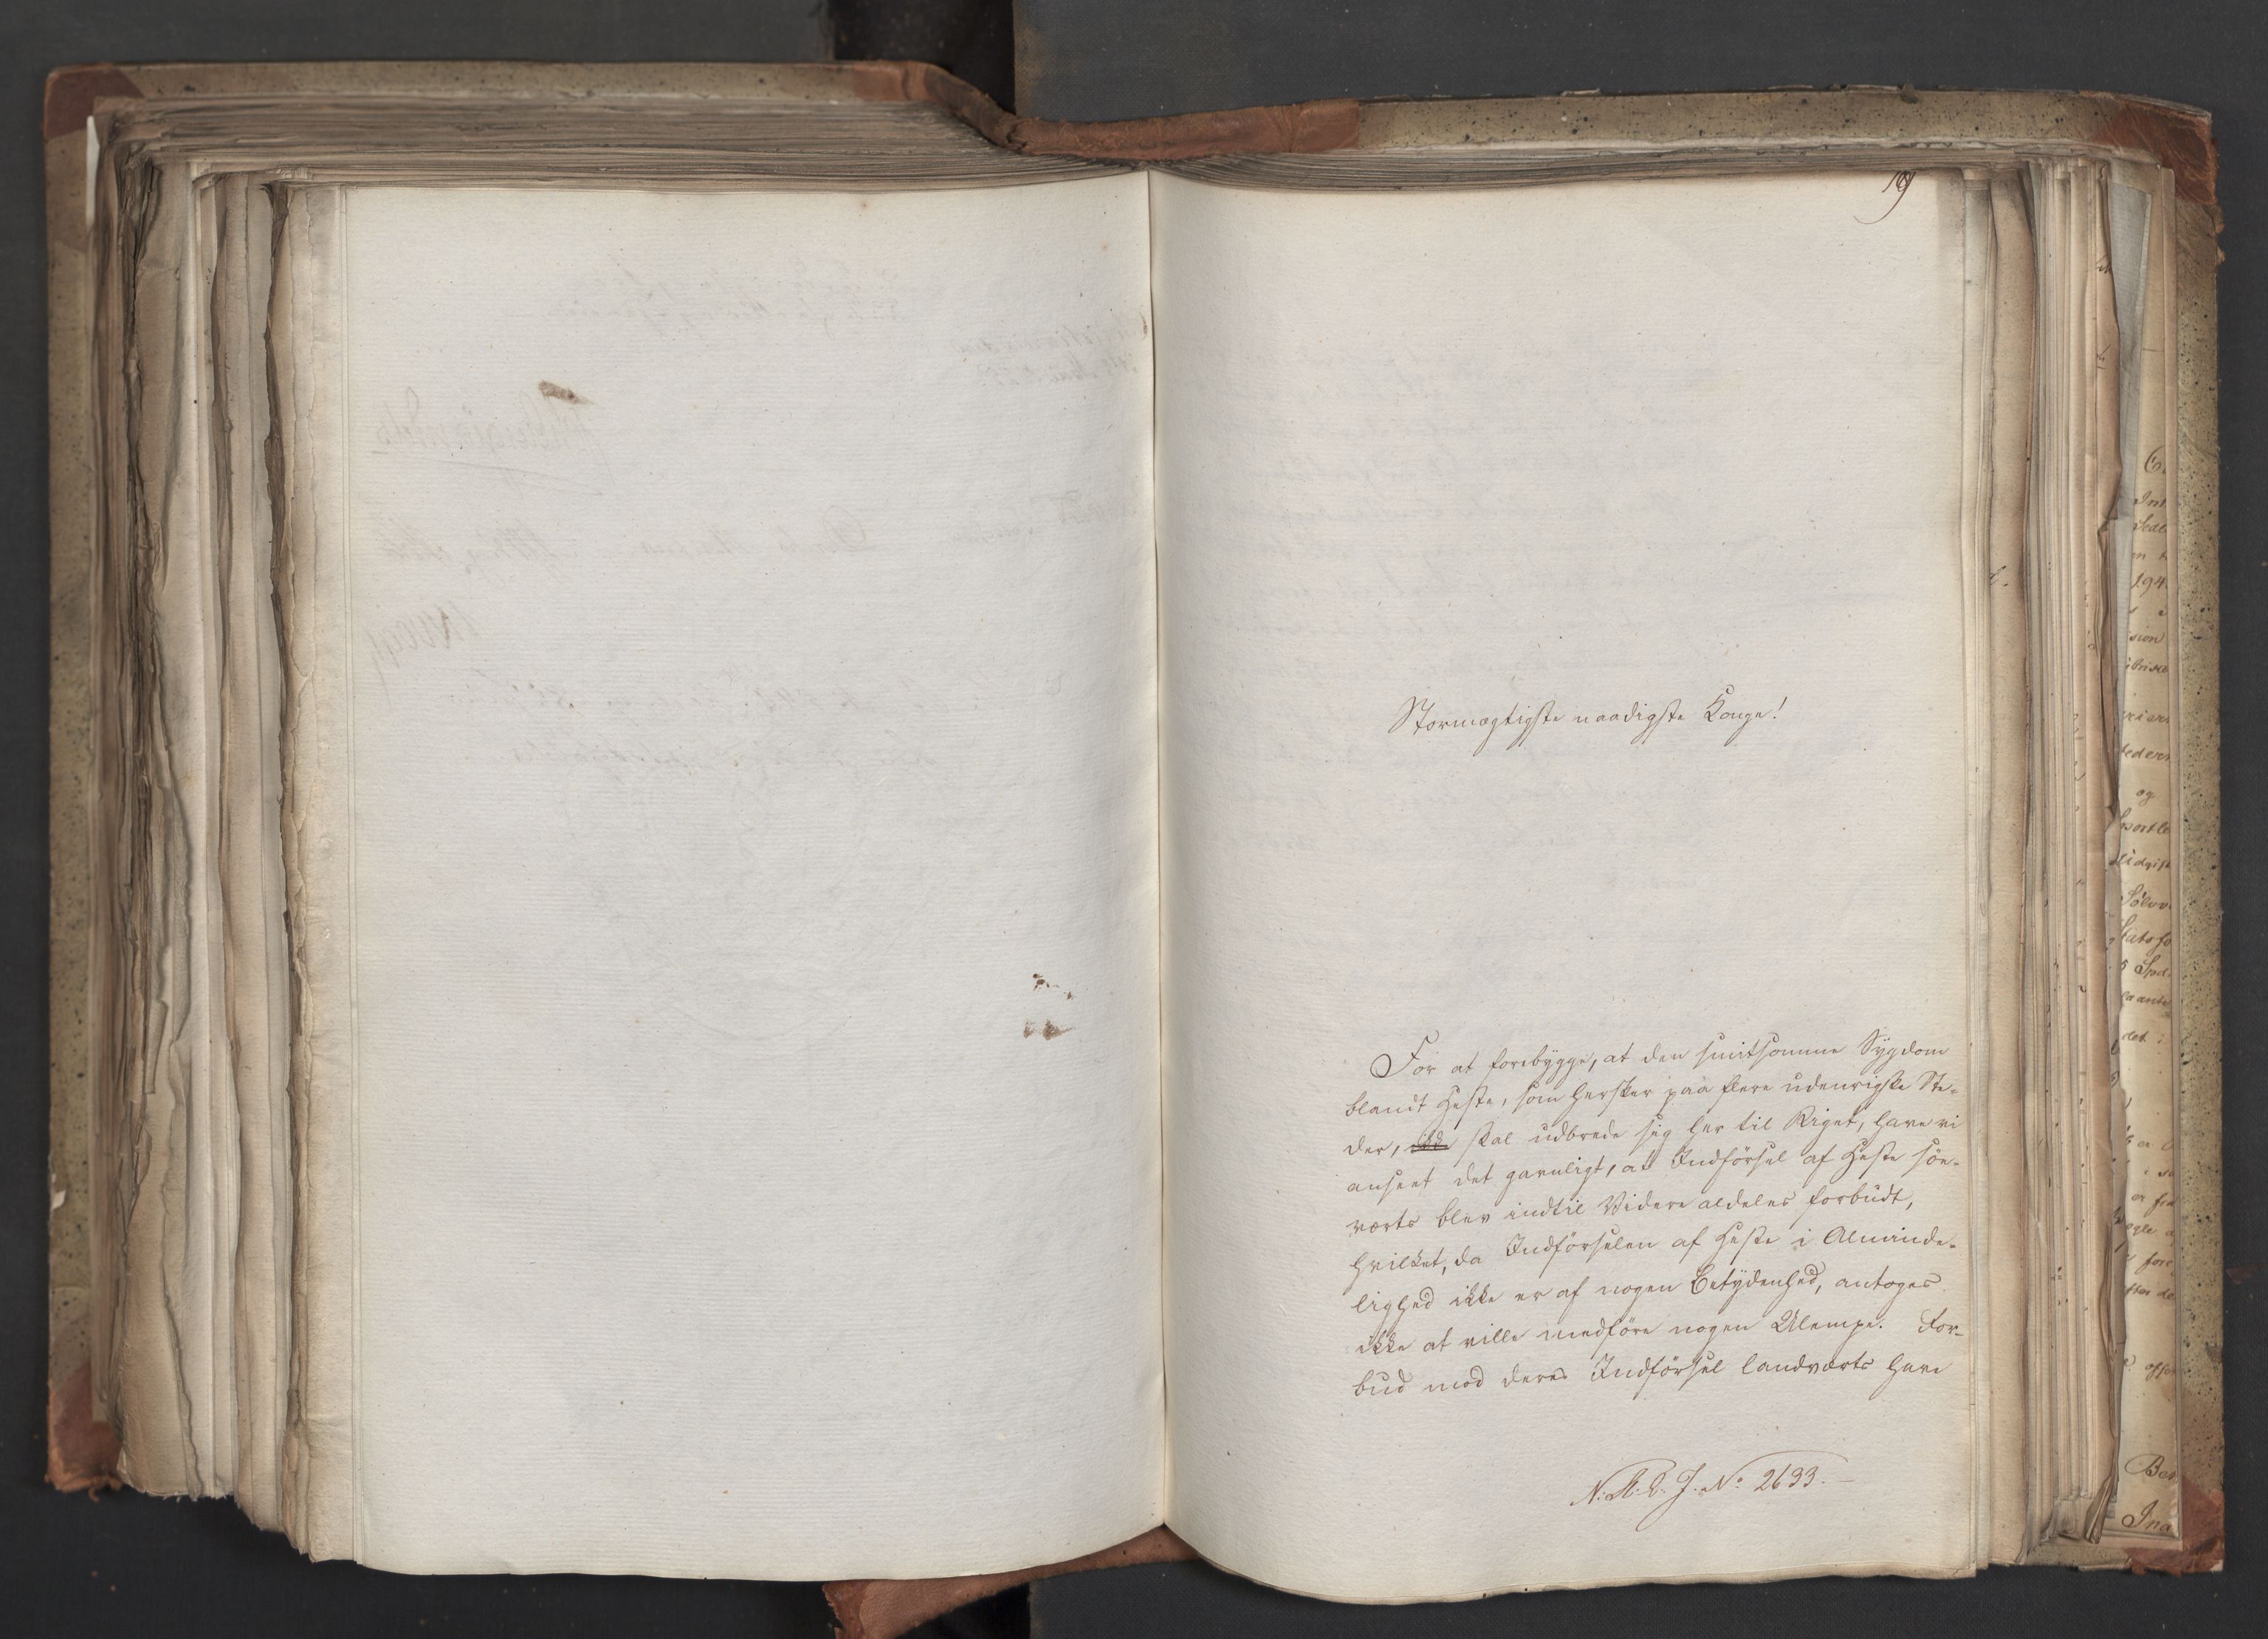 19
Stormægtigste naadigste Konge!
For at forebygge, at den smitsomme Sygdom
blandt Heste, som hersker paa flere udenrigske Ste-
der, ikke skal udbrede sig her til Riget, have vi
anseet det gavnligt, at Indførsel af Heste søe-
værts blev indtil Videre aldeles forbudt,
hvilket, da Indførselen af Heste i Alminde-
lighed ikke er af nogen Betydenhed, antoges
ikke at ville medføre nogen Ulempe. For-
bud mod deres Indførsel landværts have
No 2633.